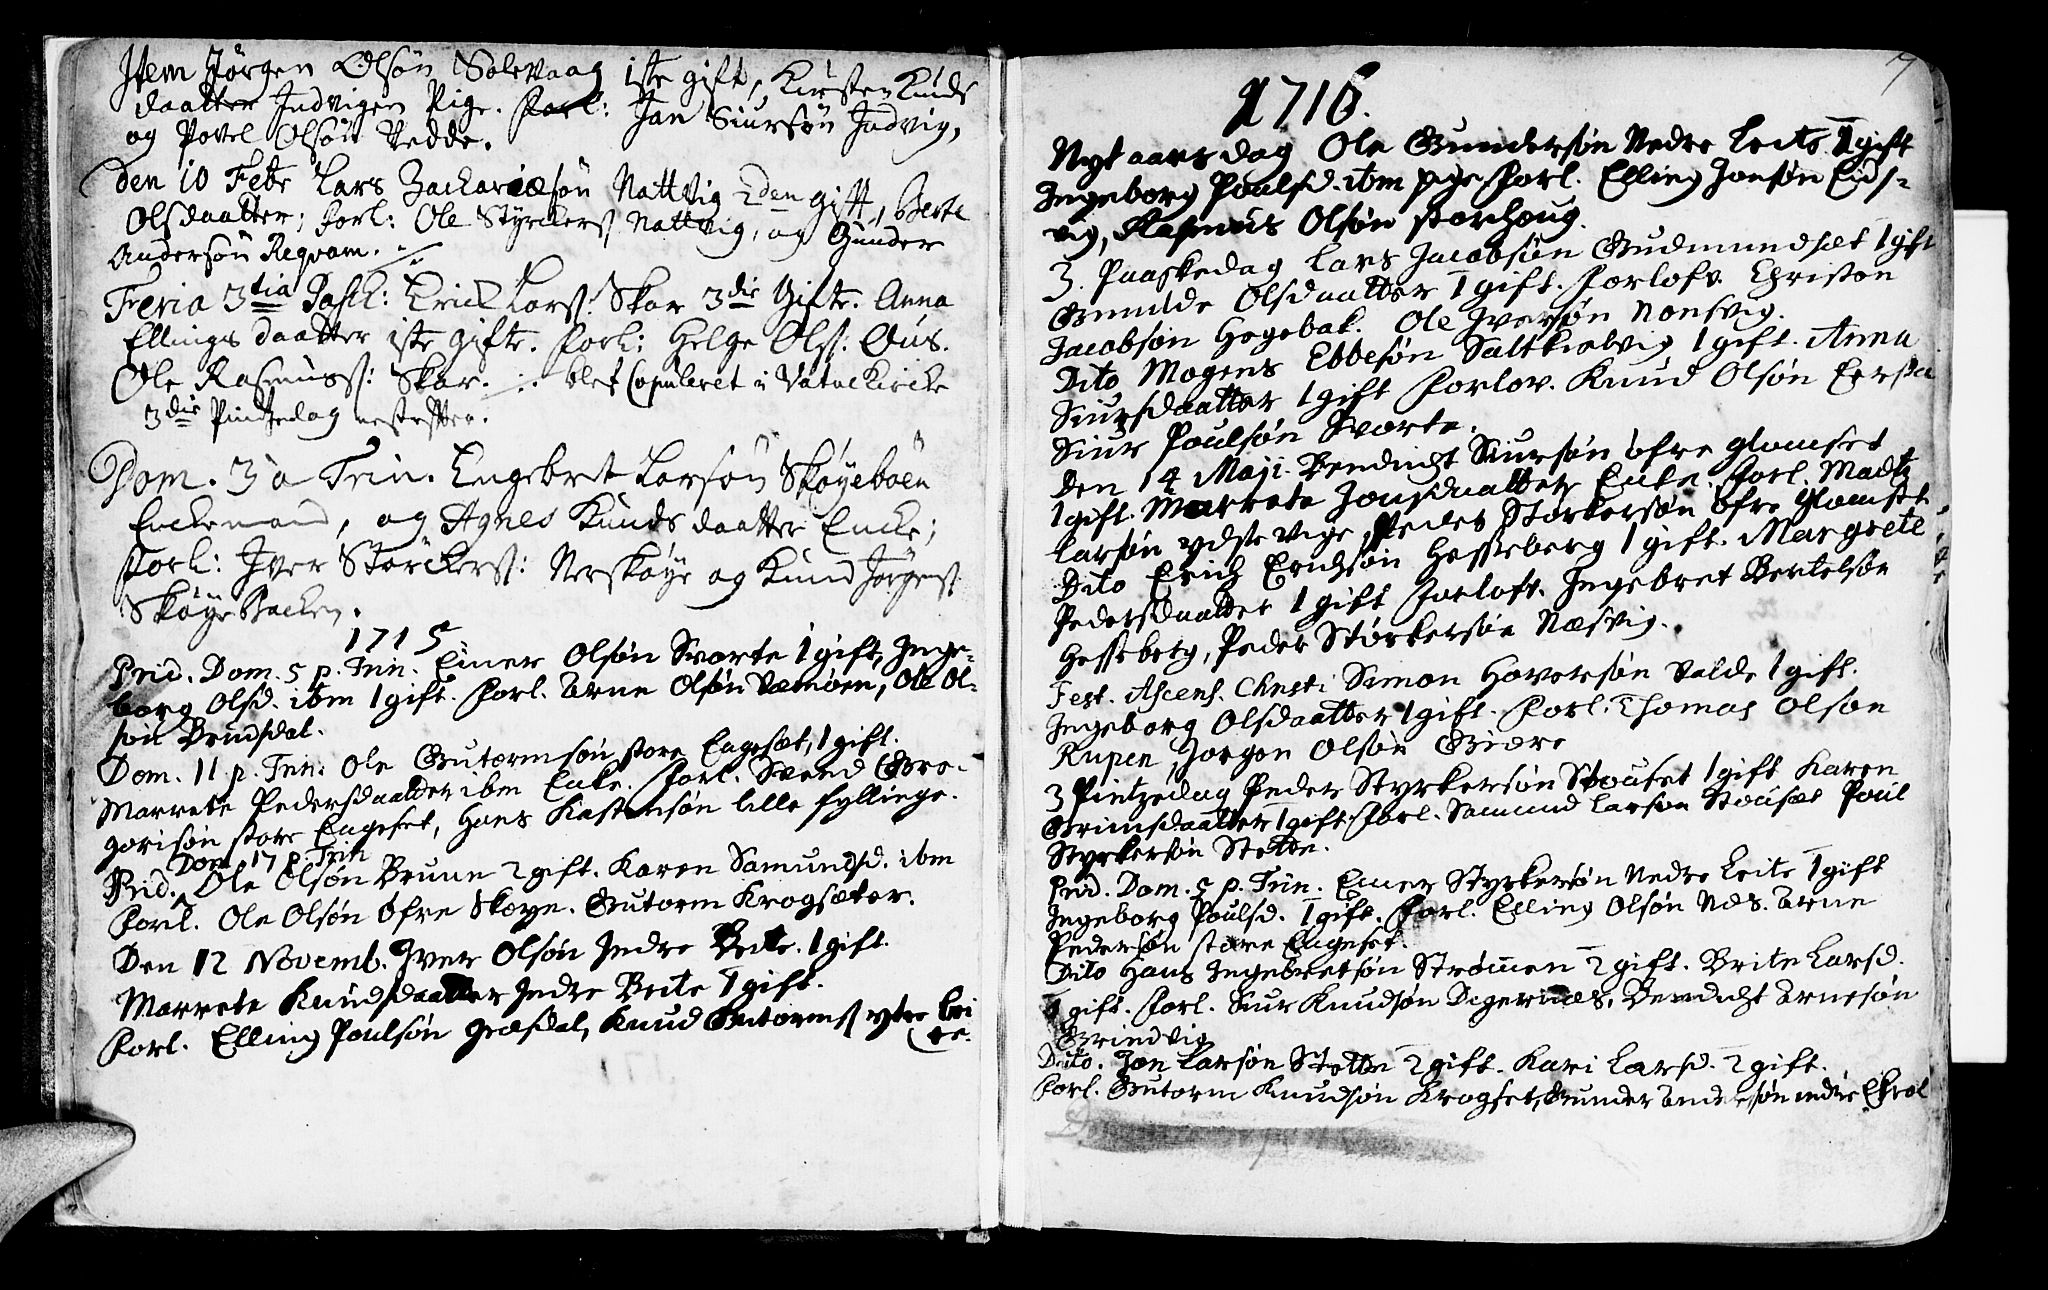 Item Jørgen Olsøn Solevaag 1ste gift, Kirsten Knuds
daatter Indvigen Pige. Forl: Jan Siursøn Indvig,
og Povel Olsøn Redde.
Den 10 Febr Lars Zachariæsøn Nattvig 2den gift, Berte
Olsdaatter; Forl: Ole Styrckers: Nattvig, og Gunder
Andersøn Reqvam. ./.
Feria 3tia Pasch: Erick Lars: Skar 3die Gifte. Anna
Ellings daatter 1ste Gifte. Forl: Helge Ols: Øus.
Ole Rasmuss: Skar. ./. blef Copuleret i Vatnekircke
3die Pindtzedag nestefter.
Dom. 3a Trin. Engebret Larsøn Skøyeboen
Enckemand, og Agnes Knuds daatter Encke;
Forl: Iver Størckers: Nerskøye og Knud Jørgens:
Skøye Backen.
1715
Prid. Dom. 5 p. Trin. Einer Olsøn Svorte 1 gift, Inge-
borg Olsd. ibm 1 gift. Forl. Arne Olsøn Vemøen, Ole Ol-
søn Brudsdal.
Dom. 11. p. Trin: Ole Gutormsøn store Engeset, 1 gift.
Marrete Pedersdaatter ibm Enke. Forl. Svend Gre-
gorisøn store Engeset, Hans Kastensøn lille fyllinge.
Dom. 17 p. Trin
Prid. Ole Olsøn Brune 2 gift. Karen Samundsd. ibm
Forl. Ole Olsøn Øfre Skøye. Gutorm Krogsæter.
Den 12 Novemb. Iver Olsøn Indre Brite. 1 gift.
Marrete Knudsdaatter Indre Brite 1 gift.
Forl. Elling Poulsøn Græsdal, Knud Gutorms: ytre Bri
te.
7
1716.
Nyt aars dag Ole Gundersøn Nedre Leite 1 gift
Ingeborg Poulsd. ibm pige Forl. Elling Jonsøn Eids-
vig, Rasmus Olsøn storhoug.
3. Paaskedag Lars Jacobsøn Gudmundset 1 gift
Gunilde Olsdaatter 1 gift. Forlofv. Christen
Jacobsøn Hogebak. Ole Iversøn Nonsvig.
Dito Mogens Ebbesøn Saltkielvig 1 gift. Anna
Siursdaatter 1 gift Forlov. Knud Olsøn
Siur Poulsøn Svorte.
Den 14 Maji. Bendicht Siursøn øfre glomset
1 gift. Marrete Jonsdaatter Enke. Forl. Madtz
Larsøn ydste vige, Peder Størkersøn øfre Glomset
Dito Erich Erichsøn Hesseberg 1 gift. Margrete
Pedersdaatter 1 gift Forloft. Ingebret Bertelsøn
Hesseberg, Peder Størkersøn Næsvig.
Fest. Ascens. Christi Simon Haversøn Valde 1 gift.
Ingeborg Olsdaatter 1 gift. Forl. Thomas Olsøn
Rypen, Jørgen Olsøn Giære
3 Pintzedag Peder Styrkersøn Stouset 1 gift Karen
Grimsdaatter 1 gift. Forl. Samund Larsøn Stouset Poul
Styrkersøn Stette.
Prid. Dom. 5 p. Trin. Einer Styrkersøn Nedre Leite 1 gift
Ingeborg Poulsd. 1 gift. Forl. Elling Olsøn Næs. Arne
Pedersøn store Engeset.
Dito Hans Ingebretsøn Strømen 2 gift. Brite Larsd.
1 gift. Forl. Siur Knudsøn Degernæs, Bendicht Arnesøn
Grindvig
Dito. Jon Larsøn Stette 2 gift. Kari Larsd. 2 gift.
Forl. Gutorm Knudsøn Krogset, Gunder Andersøn indre